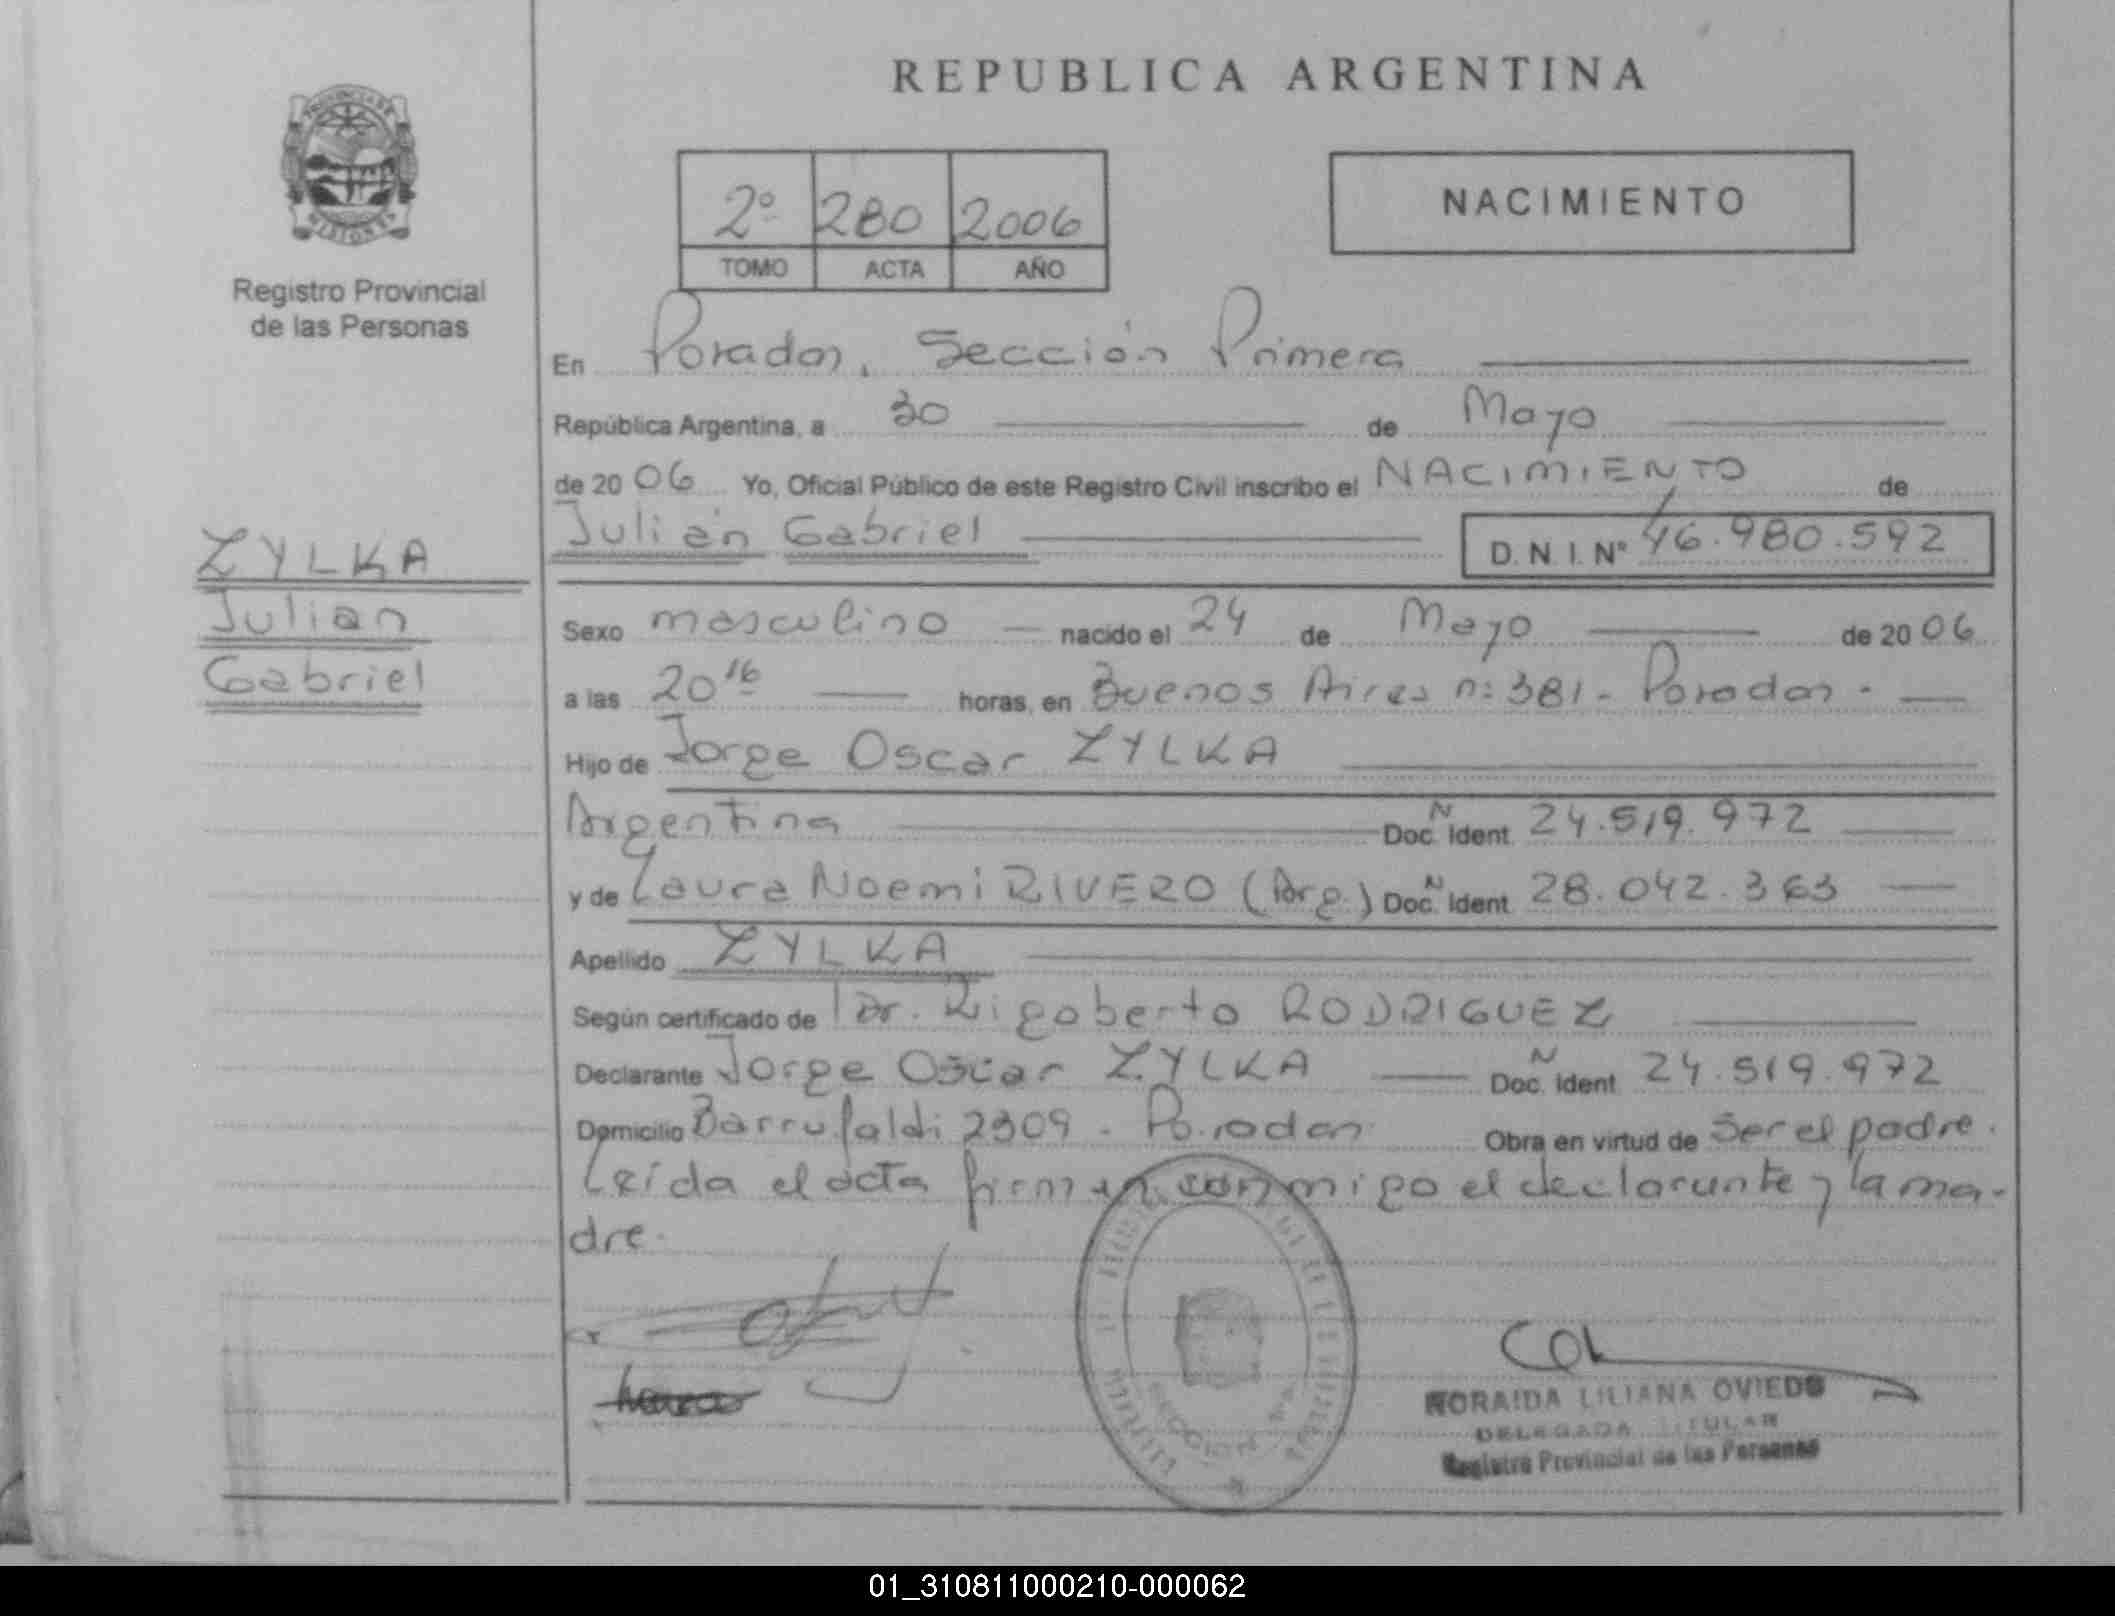 REPUBLICA ARGENTINA
PROVINCIA DE
MISIONES
Registro Provincial
de las Personas
2º 280 2006
TOMO ACTA AÑO
NACIMIENTO
En Posadas, Sección Primera
República Argentina, a 30 de Mayo
de 20 06 Yo, Oficial Público de este Registro Civil inscribo el NACIMIENTO de
Julián Gabriel D. N. I. Nº 46.980.592
ZYLKA
Julian
Gabriel
Sexo masculino nacido el 24 de Mayo de 20 06
a las 20 16 horas, en Buenos Aires n: 381 - Posadas -
Hijo de Jorge Oscar ZYLKA
Argentina N Doc. Ident. 24.519.972
y de Laura Noemi RIVERO (Arg.) N Doc. Ident. 28.042.363
Apellido ZYLKA
Según certificado de Dr. Rigoberto RODRIGUEZ
Declarante Jorge Oscar ZYLKA N Doc. Ident. 24.519.972
Domicilio Barrufaldi 2309 - Posadas Obra en virtud de Ser el padre.
Leída el acta firman conmigo el declarante y la ma-
dre.
SECCION 1ra
NORAIDA LILIANA OVIEDO
DELEGADA TITULAR
Registro Provincial de las Personas
01_310811000210-000062